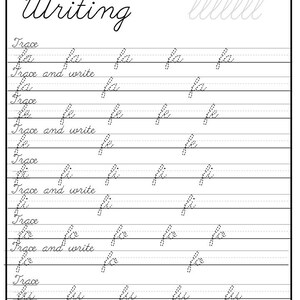 Writing lllllll
Trace
fa fa fa fa fa
Trace and write
fa fa fa
Trace
fe fe fe fe fe
Trace and write
fe fe fe
Trace
fi fi fi fi fi
Trace and write
fi fi fi
Trace
fo fo fo fo fo
Trace and write
fo fo fo
Trace
fu fu fu fu fu